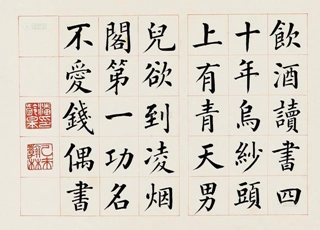 飲酒讀書四
十年烏紗頭
上有青天男
兒欲到凌烟
閣第一功名
不愛錢偶書